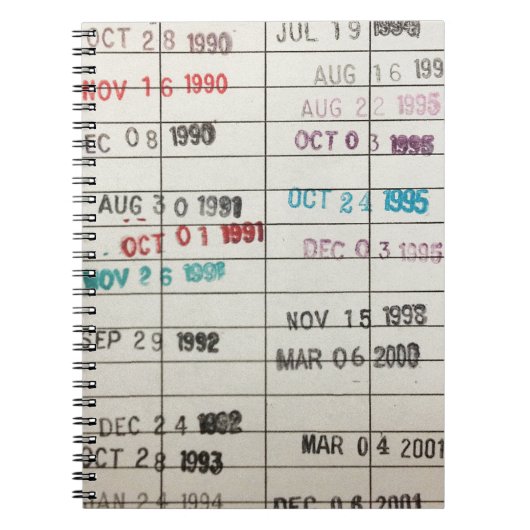 OCT 28 1990
NOV 16 1990
EC 08 1990
AUG 30 1991
OCT 01 1991
NOV 26 1991
SEP 29 1992
DEC 24 1992
OCT 28 1993
JAN 24 1994
JUL 19 1994
AUG 16 199
AUG 22 1995
OCT 03 1995
OCT 24 1995
DEC 03 1995
NOV 15 1998
MAR 06 2000
MAR 04 2001
DEC 06 2001